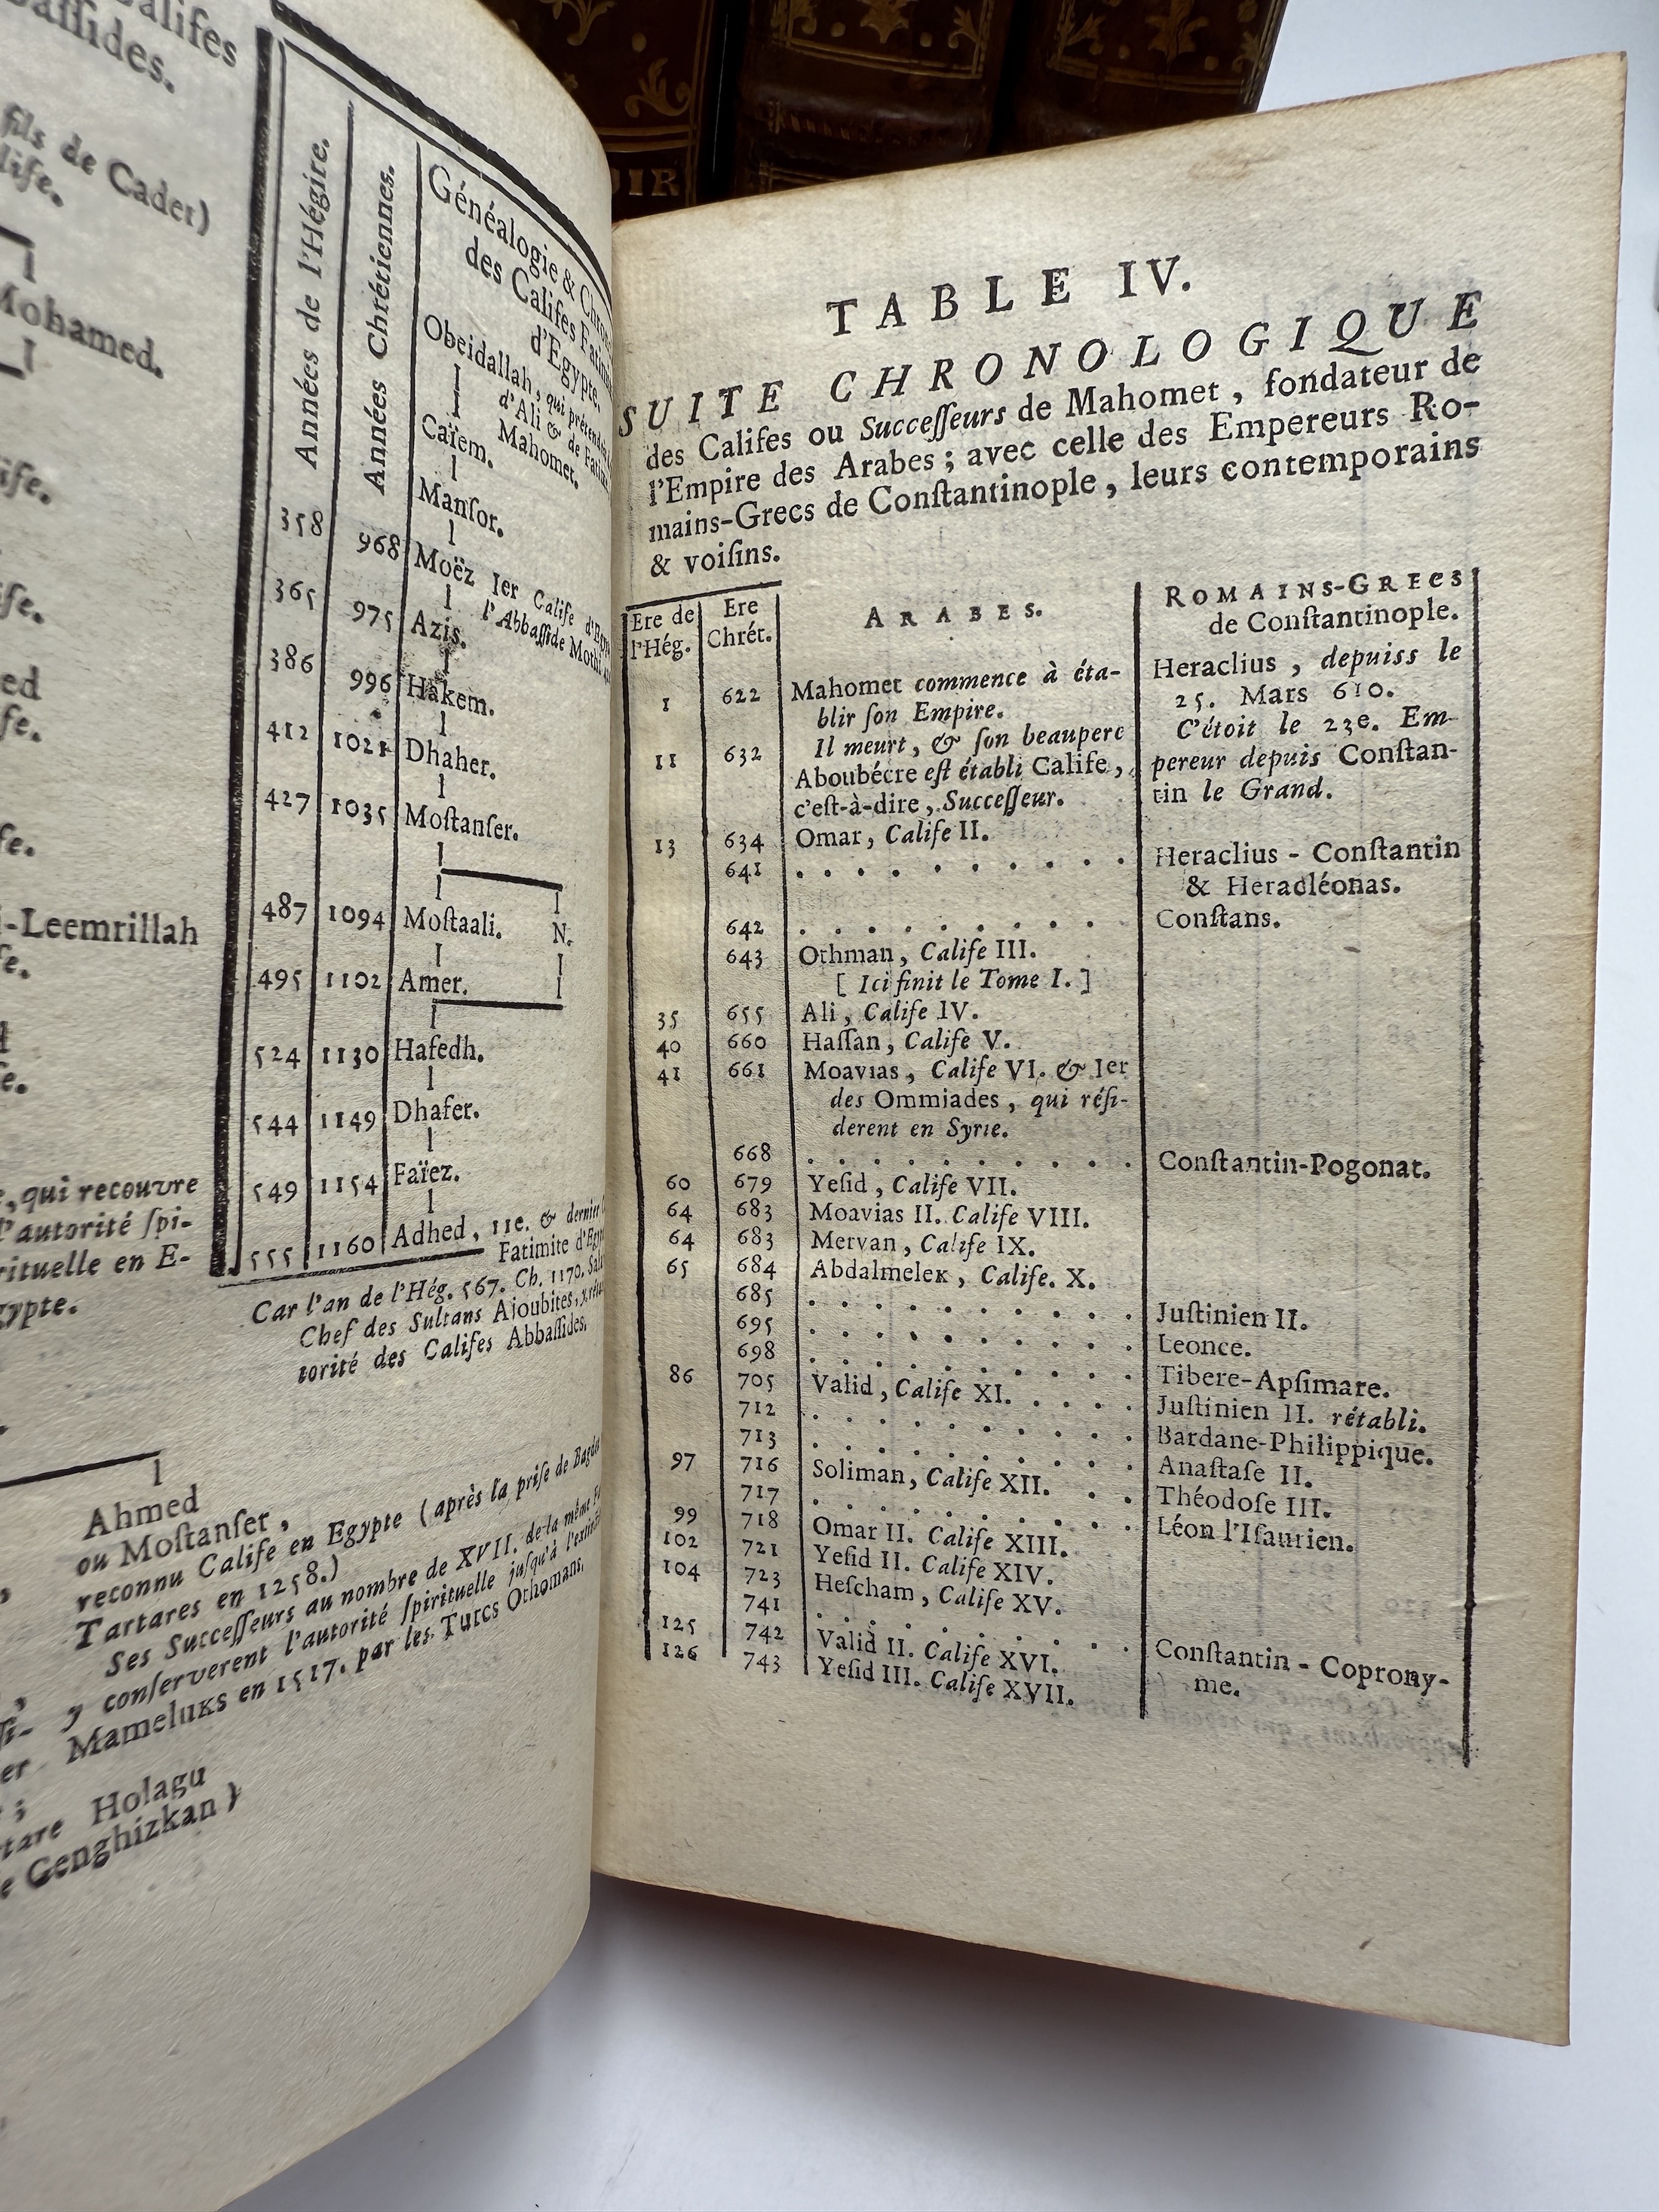 Califes
bassides.
fils de Cader)
life.
Mohamed.
ife.
ed
fe.
i-Leemrillah
, qui recouvre
l'autorité ſpi-
rituelle en E-
gypte.
Années de l'Hégire.
Années Chrétiennes.
Généalogie & Chron
des Califes Fatim
d'Egypte.
Obeidallah, qui prétend
d'Ali & de Fatim
Mahomet.
Caïem.
Manſor.
358 968 Moëz Ier Calife d'Egy
l'Abbaſſide Mothi
365 975 Azis.
386 996 Hakem.
412 1021 Dhaher.
427 1035 Moſtanſer.
487 1094 Moſtaali. N.
495 1102 Amer.
524 1130 Hafedh.
544 1149 Dhafer.
549 1154 Faïez.
555 1160 Adhed, 11e. & dernier
Fatimite d'Egy
Car l'an de l'Hég. 567. Ch. 1170. Sala
Chef des Sultans Ajoubites, y réta
torité des Califes Abbaſſides.
Ahmed
ou Moſtanſer,
reconnu Calife en Egypte (après la priſe de Bagdet
Tartares en 1258.)
Ses Succeſſeurs au nombre de XVII. de la même F
y conſerverent l'autorité ſpirituelle juſqu'à l'extinct
Mameluks en 1517. par les Turcs Othomans.
tare Holagu
e Genghizkan)
OIR
TABLE IV.
SUITE CHRONOLOGIQUE
des Califes ou Succeſſeurs de Mahomet, fondateur de
l'Empire des Arabes; avec celle des Empereurs Ro-
mains-Grecs de Conſtantinople, leurs contemporains
& voiſins.
Ere de l'Hég. Ere Chrét. ARABES. ROMAINS-GRECS
de Conſtantinople.
1 622 Mahomet commence à éta- Heraclius, depuiss le
blir ſon Empire. 25. Mars 610.
11 632 Il meurt, & ſon beaupere C'étoit le 23e. Em-
Aboubécre eſt établi Calife, pereur depuis Conſtan-
c'eſt-à-dire, Succeſſeur. tin le Grand.
13 634 Omar, Calife II.
641 . . . . . . . . . . Heraclius - Conſtantin
& Heracléonas.
642 . . . . . . . . . . Conſtans.
643 Othman, Calife III.
[ Ici finit le Tome I. ]
35 655 Ali, Calife IV.
40 660 Haſſan, Calife V.
41 661 Moavias, Calife VI. & Ier
des Ommiades, qui réſi-
derent en Syrie.
668 . . . . . . . . . . Conſtantin-Pogonat.
60 679 Yeſid, Calife VII.
64 683 Moavias II. Calife VIII.
64 683 Mervan, Calife IX.
65 684 Abdalmelek, Calife. X.
685 . . . . . . . . . . Juſtinien II.
695 . . . . . . . . . . Leonce.
698 . . . . . . . . . . Tibere-Apſimare.
86 705 Valid, Calife XI. . . . . Juſtinien II. rétabli.
712 . . . . . . . . . . Bardane-Philippique.
713 . . . . . . . . . . Anaſtaſe II.
97 716 Soliman, Calife XII. . . Théodoſe III.
717 . . . . . . . . . . Léon l'Iſaurien.
99 718 Omar II. Calife XIII.
102 721 Yeſid II. Calife XIV.
104 723 Heſcham, Calife XV.
741 . . . . . . . . . . Conſtantin - Coprony-
me.
125 742 Valid II. Calife XVI.
126 743 Yeſid III. Calife XVII.